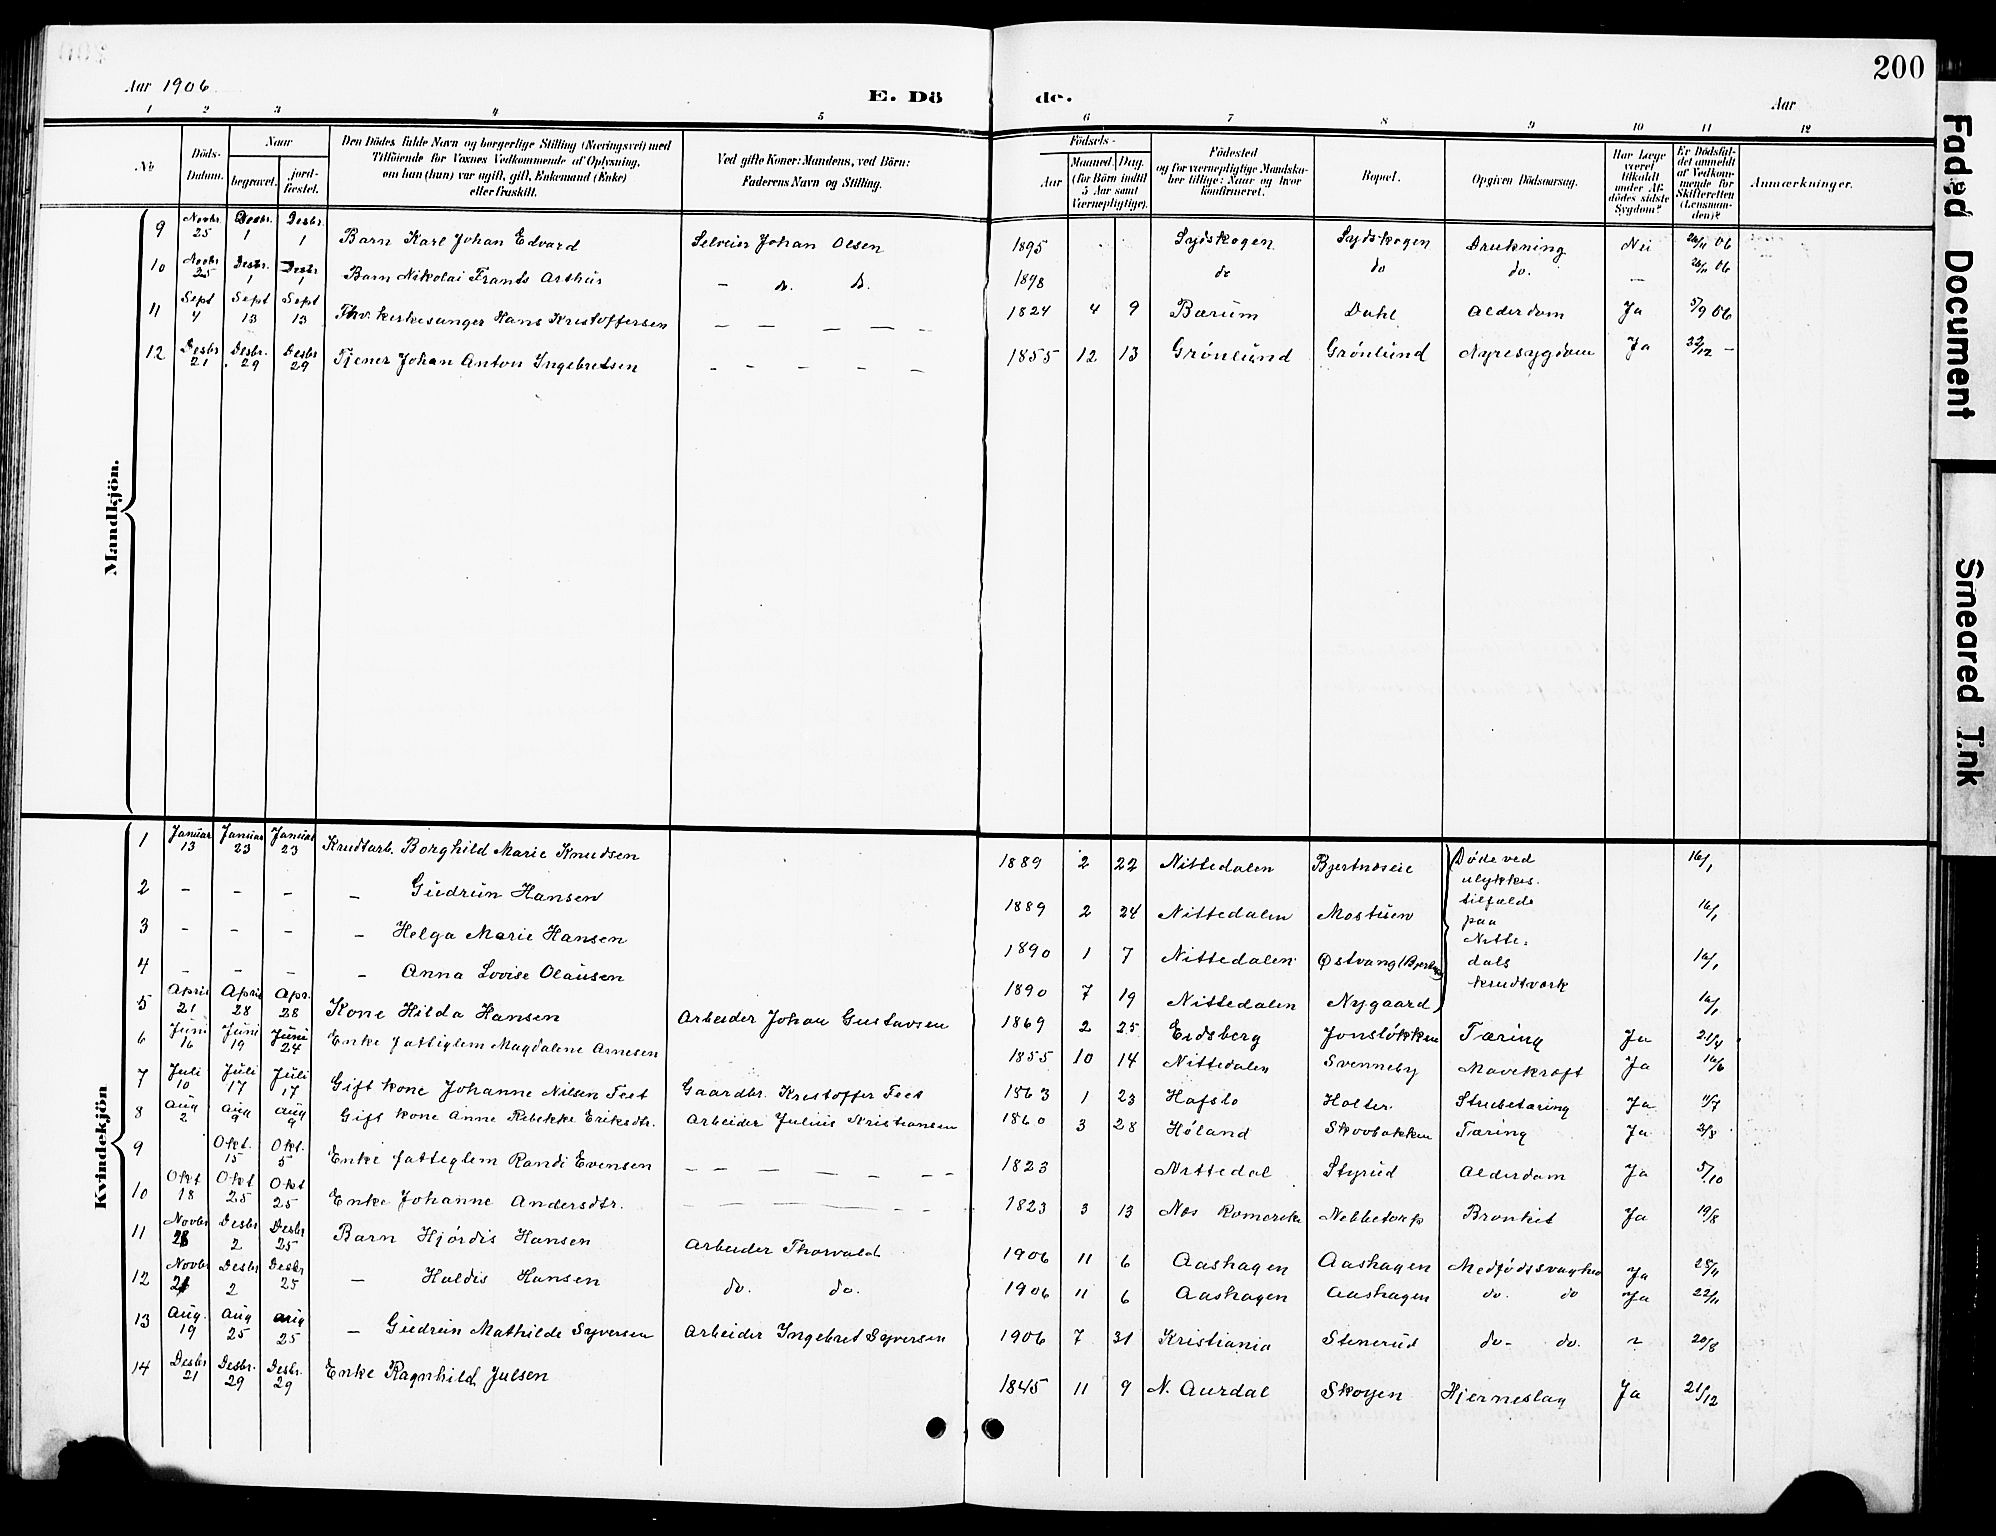 200
Aar 1906
E. Dö de.
Aar
1 2 3 4 5 6 7 8 9 10 11 12
No
Döds-Datum.
Naar
begravet.
jord-fæstet.
Den Dödes fulde Navn og borgerlige Stilling (Næringsvei) med
Tilföiende for Voxnes Vedkommende af Oplysning,
om han (hun) var ugift, gift, Enkemand (Enke)
eller fraskilt.
Ved gifte Koner: Mandens, ved Börn:
Faderens Navn og Stilling.
Födsels-
Aar
Maaned. Dag.
(for Börn indtil
5 Aar samt
Værnepligtige).
Födested
og for værnepligtige Mandska-
ber tillige: Naar og hvor
konfirmeret.
Bopæl.
Opgiven Dödsaarsag.
Har Læge
været
tilkaldt
under Af-
dödes sidste
Sygdom?
Er Dödsfal-
det anmeldt
af Vedkom-
mende for
Skifteretten
(Lensman-
den)?
Anmærkninger.
Mandkjön.
9 Novbr. 25 Desbr. 1 Desbr. 1 Barn Karl Johan Edvard Selveier Johan Olsen 1895 Sydskogen Sydskogen Drukning Nei 26/11 06
10 Novbr. 25 Desbr. 1 Desbr. 1 Barn Nikolai Frants Arthur – do. do. 1898 do do do. – 26/11 06
11 Sept 4 Sept 13 Sept 13 Thv. kirkesanger Hans Kristoffersen – – – – – 1824 4 9 Bærum Dahl Alderdom Ja 5/9 06
12 Desbr. 21 Desbr. 29 Desbr 29 Tjener Johan Anton Ingebretsen – – – – – 1855 12 13 Grønlund Grønlund Nyresygdom Ja 22/12 –
Kvindekjön
1 Januar 13 Januar 23 Januar 23 Krudtarb. Borghild Marie Knudsen 1889 2 22 Nittedalen Bjertnæseie Døde ved ulykkes. tilfælde paa Nitte- dals krudtværk 16/1
2 – – – – Gudrun Hansen 1889 2 24 Nittedalen Mostuen 16/1
3 – – – – Helga Marie Hansen 1890 1 7 Nittedalen Østvang 16/1
4 – – – – Anna Lovise Olausen 1890 7 19 Nittedalen Nygaard 16/1
5 April 21 April 28 Apr. 28 Kone Hilda Hansen Arbeider Johan Gustavsen 1869 2 25 Eidsberg Jonsløkken Tæring Ja 21/4
6 Juni 16 Juni 19 Juni 24 Enke fattiglem Magdalene Arnesen 1855 10 14 Nittedalen Svenneby Mavekræft Ja 16/6
7 Juli 10 Juli 17 Juli 17 Gift kone Johanne Nilsen Feet Gaardbr. Kristoffer Feet 1863 1 23 Hafslo Holter. Strubetæring Ja 11/7
8 Aug 2 Aug 9 Aug 9 Gift kone Anne Rebekke Eriksdtr. Arbeider Julius Kristiansen 1860 3 28 Høland Skovbakken Tæring Ja 3/8
9 Okt. 15 Okt. 5 Enke fattiglem Randi Evensen – – – – – – 1823 Nittedal Styrud Alderdom Ja 5/10
10 Okt 18 Okt 25 Okt 25 Enke Johanne Andersdtr. – – – – – – 1823 3 13 Nes Romerike Nebbetorp Bronkit Ja 19/8
11 Novbr 28 Desbr 2 Desbr 25 Barn Hjørdis Hansen Arbeider Thorvald 1906 11 6 Aashagen Aashagen Medfødt svaghed Ja 28/11
12 Novbr 21 Desbr 2 Desbr 25 – Haldis Hansen do. do. 1906 11 6 Aashagen Aashagen do. do Ja 22/11
13 Aug. 19 Aug 25 Aug 25 – Gudrun Mathilde Syversen Arbeider Ingebret Syversen 1906 7 31 Kristiania Stenerud do- do. 20/8
14 Desbr 21 Desbr. 29 Desbr. 29 Enke Ragnhild Julsen 1845 11 9 N. Aurdal Skøyen Hjerneslag Ja 21/12
Faded Document
Smeared Ink